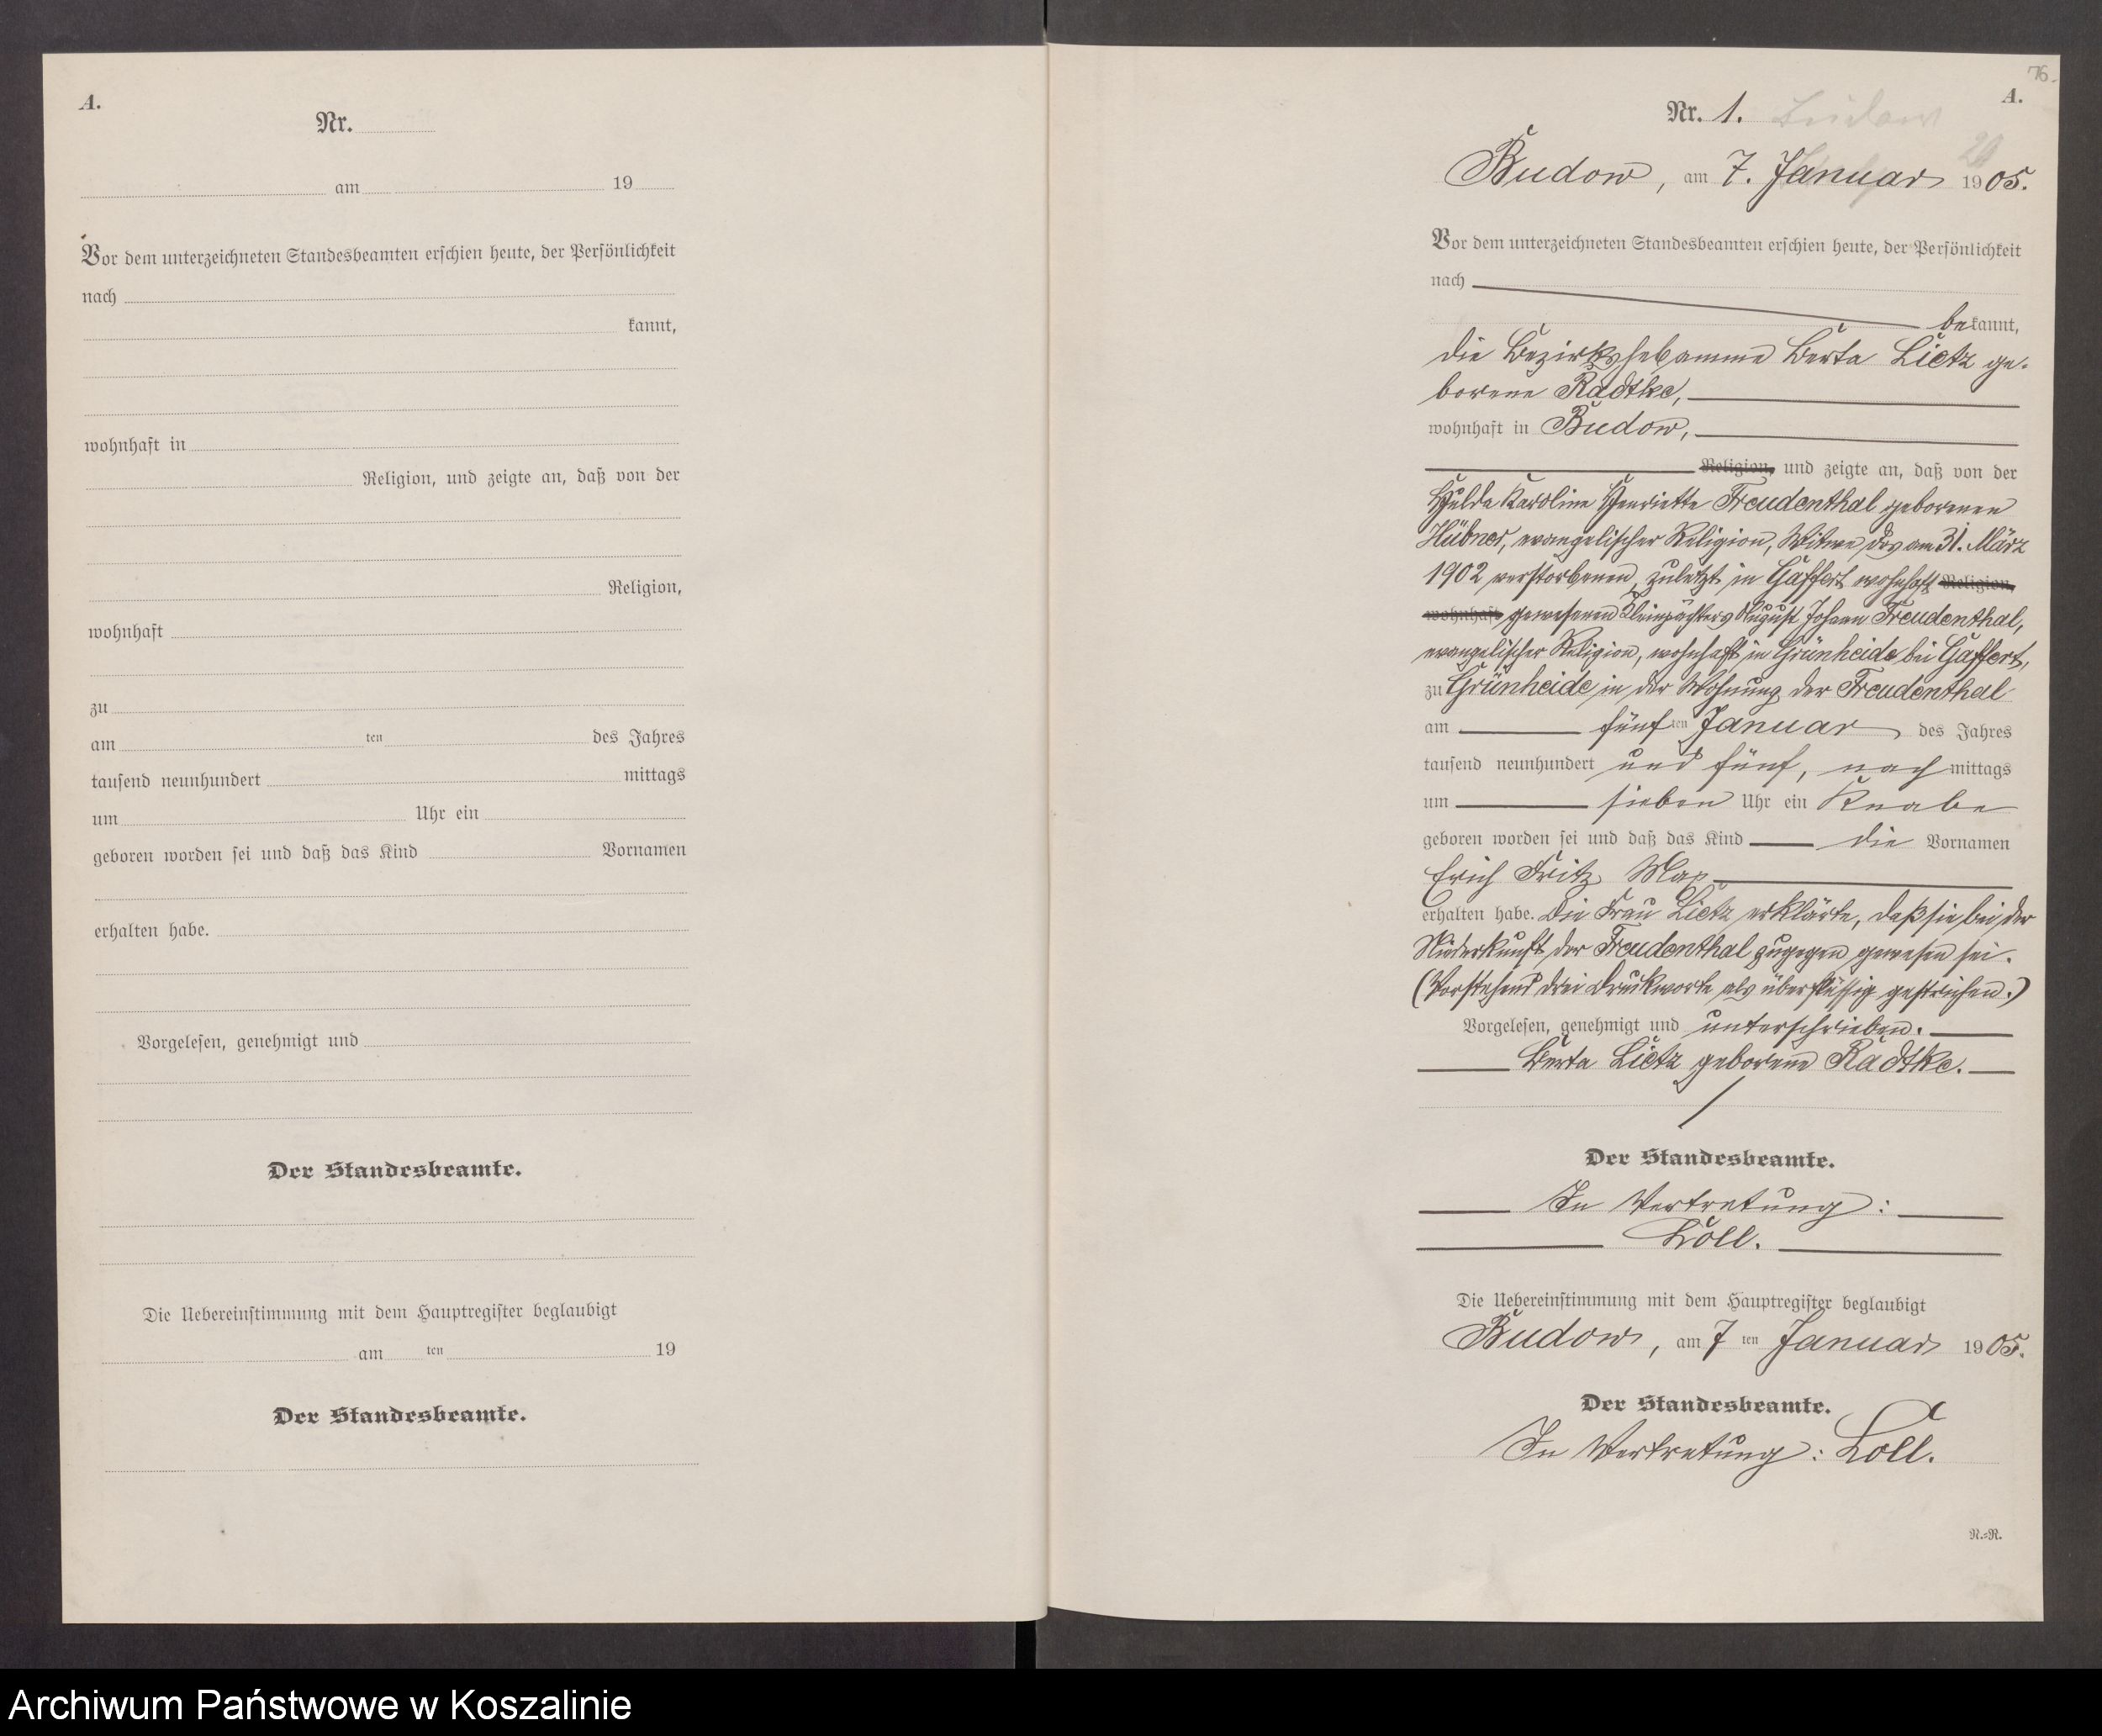 A.
Nr.
am 19
Vor dem unterzeichneten Standesbeamten erschien heute, der Persönlichkeit
nach
kannt,
wohnhaft in
Religion, und zeigte an, daß von der
Religion,
wohnhaft
zu
am ten des Jahres
tausend neunhundert mittags
um Uhr ein
geboren worden sei und daß das Kind Vornamen
erhalten habe.
Vorgelesen, genehmigt und
Der Standesbeamte.
Die Uebereinstimmung mit dem Hauptregister beglaubigt
am ten 19
Der Standesbeamte.
76.
A.
Nr. 1.
Budow, am 7. Januar 1905.
Vor dem unterzeichneten Standesbeamten erschien heute, der Persönlichkeit
nach
bekannt,
die Bezirkshebamme Berta Lietz ge-
borene Radtke,
wohnhaft in Budow,
Religion, und zeigte an, daß von der
Hulda Karoline Henriette Freudenthal geborenen
Hübner, evangelischer Religion, Witwe des am 31. März
1902 verstorbenen, zuletzt in Gaffert wohnhaft Religion,
wohnhaft gewesenen Kleinpächters August Johann Freudenthal,
evangelischer Religion, wohnhaft in Grünheide bei Gaffert,
zu Grünheide in der Wohnung der Freudenthal
am fünften Januar des Jahres
tausend neunhundert und fünf, nachmittags
um sieben Uhr ein Knabe
geboren worden sei und daß das Kind die Vornamen
Erich Fritz Max
erhalten habe. Die Frau Lietz erklärte, daß sie bei der
Niederkunft der Freudenthal zugegen gewesen sei.
(Vorstehend drei Druckworte als überflüssig gestrichen.)
Vorgelesen, genehmigt und unterschrieben.
Berta Lietz geborene Radtke.
Der Standesbeamte.
In Vertretung:
Loll.
Die Uebereinstimmung mit dem Hauptregister beglaubigt
Budow, am 7ten Januar 1905.
Der Standesbeamte.
In Vertretung: Loll.
N.=R.
Archiwum Państwowe w Koszalinie